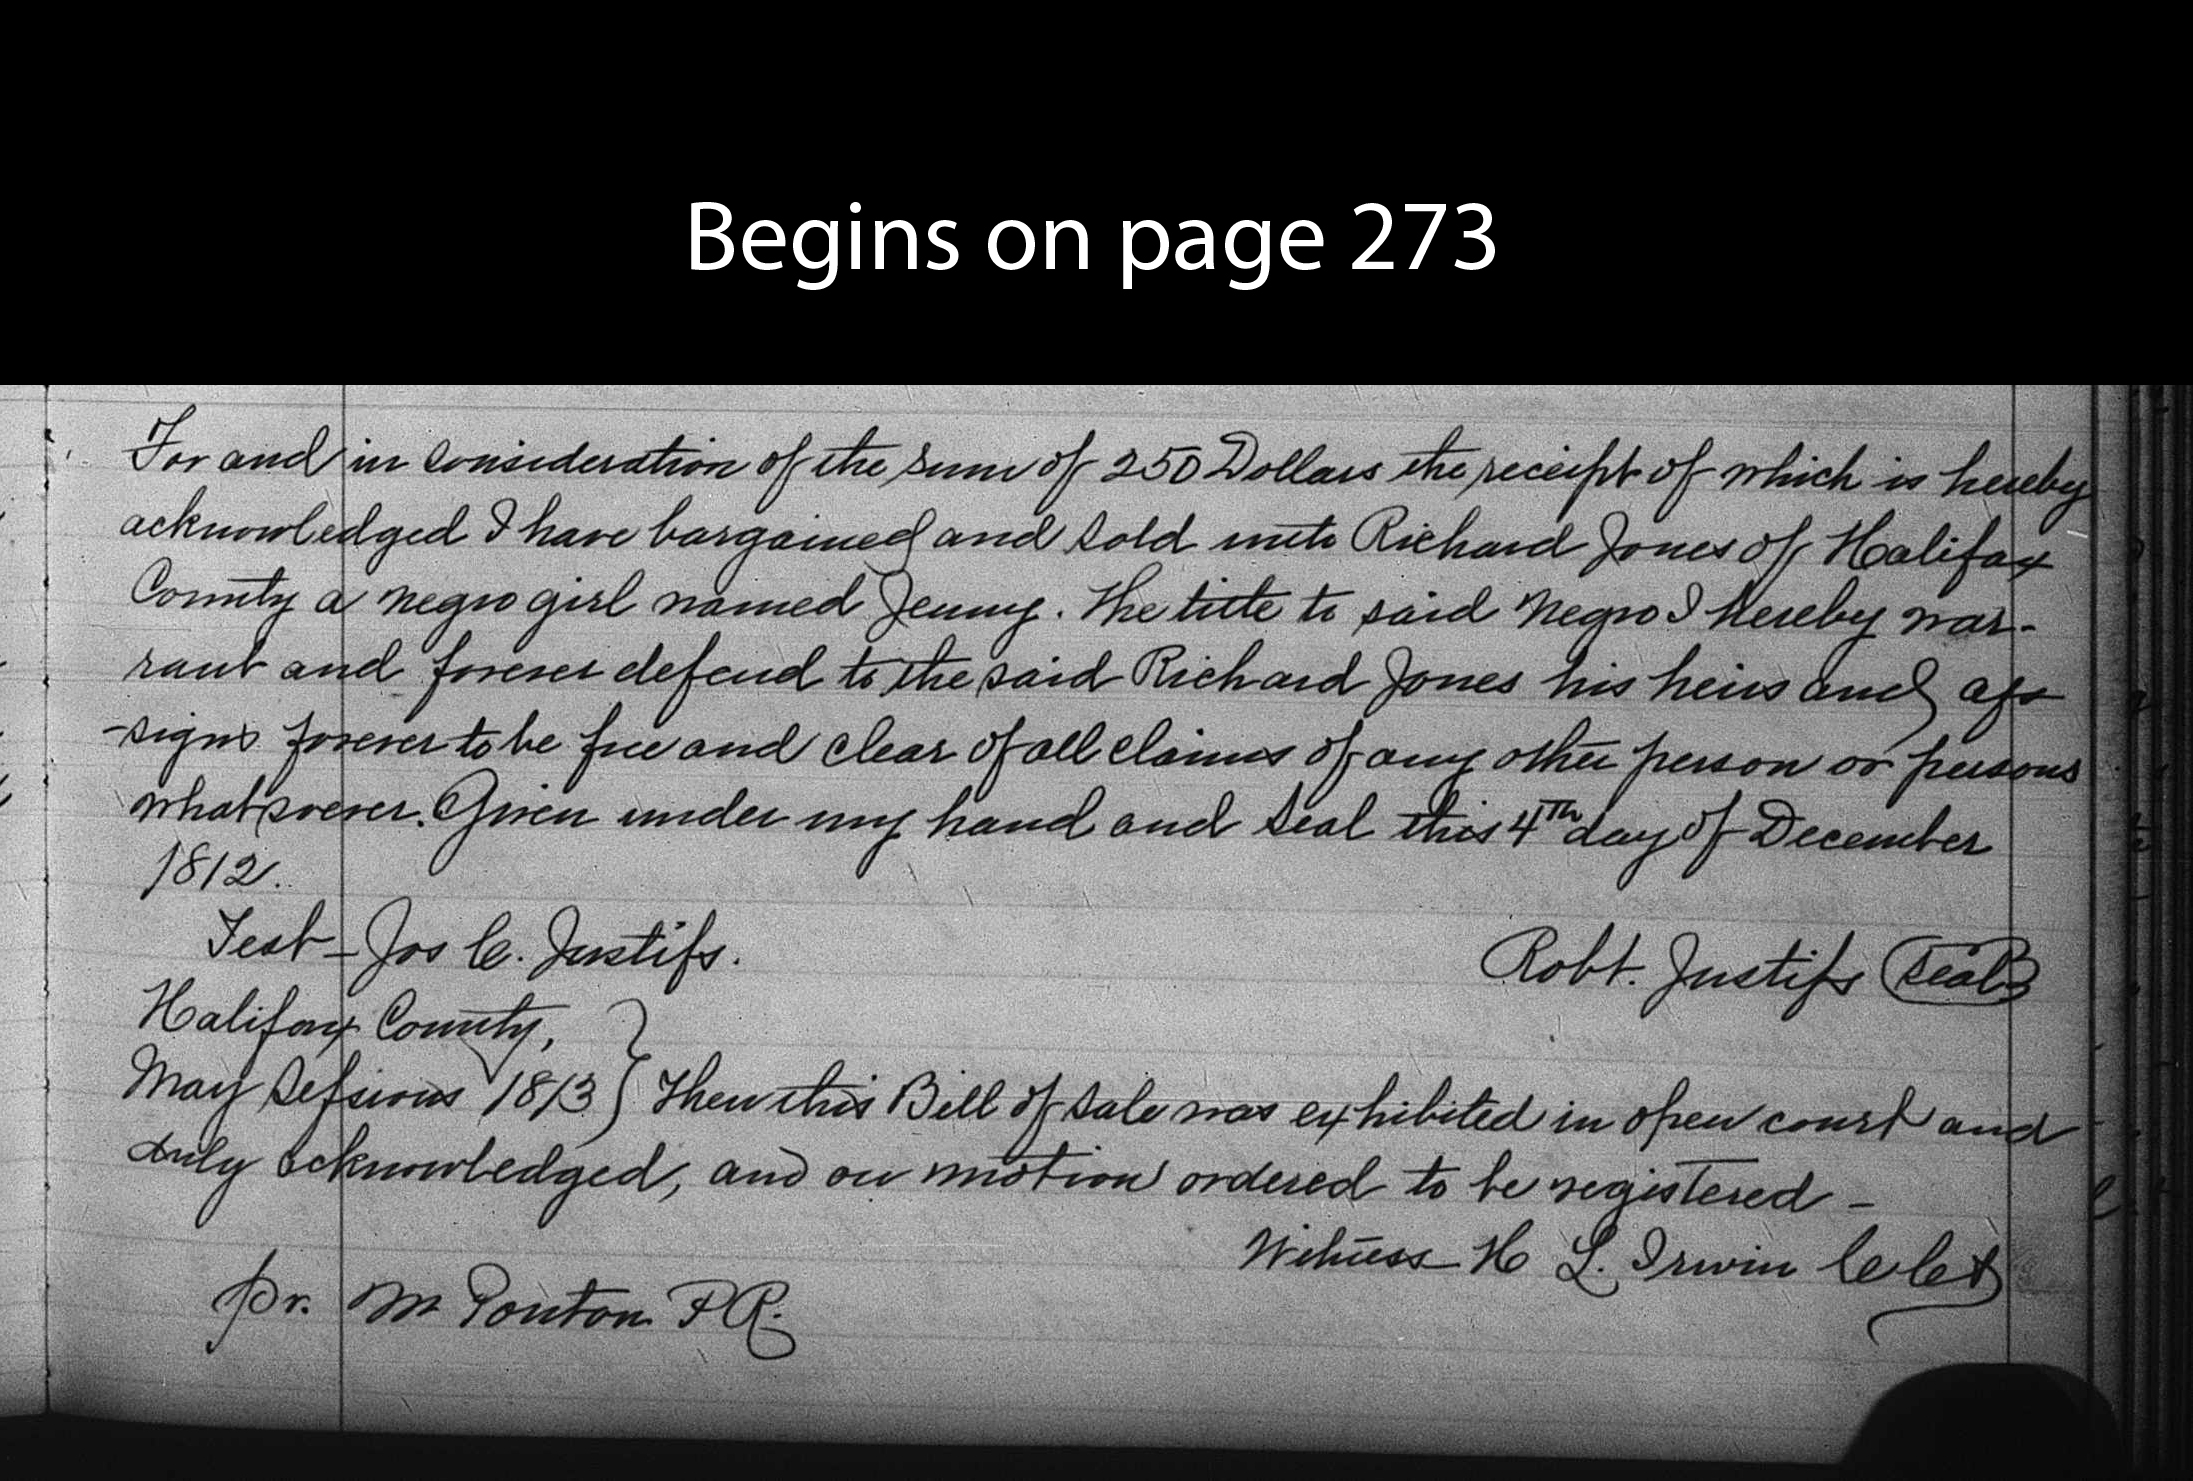 Begins on page 273
For and in consideration of the sum of 250 Dollars the receipt of which is hereby
acknowledged I have bargained and sold unto Richard Jones of Halifax
County a negro girl named Jenny. The title to said Negro I hereby war-
rant and forever defend to the said Richard Jones his heirs and as
-signs forever to be free and clear of all claims of any other person or persons
whatsoever. Given under my hand and seal this 4th day of December
1812.
Test - Jos C. Justiss.
Robt. Justiss Seal
Halifax County,
May Sessions 1813 } Then this Bill of Sale was exhibited in open court and
duly acknowledged, and on motion ordered to be registered -
Witness H L. Irwin
pr. M Ponton P R.